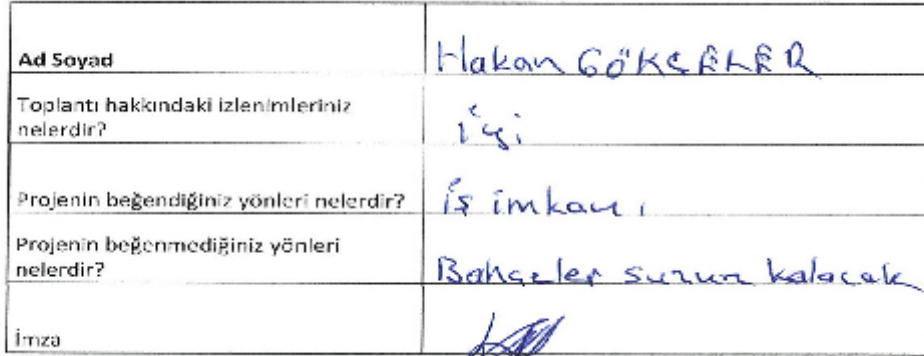 Ad Soyad
Hakan GÖKÇELER
Toplantı hakkındaki izlenimleriniz
nelerdir?
iyi
Projenin beğendiğiniz yönleri nelerdir?
iş imkanı
Projenin beğenmediğiniz yönleri
nelerdir?
Bahçeler suzun kalacak
İmza